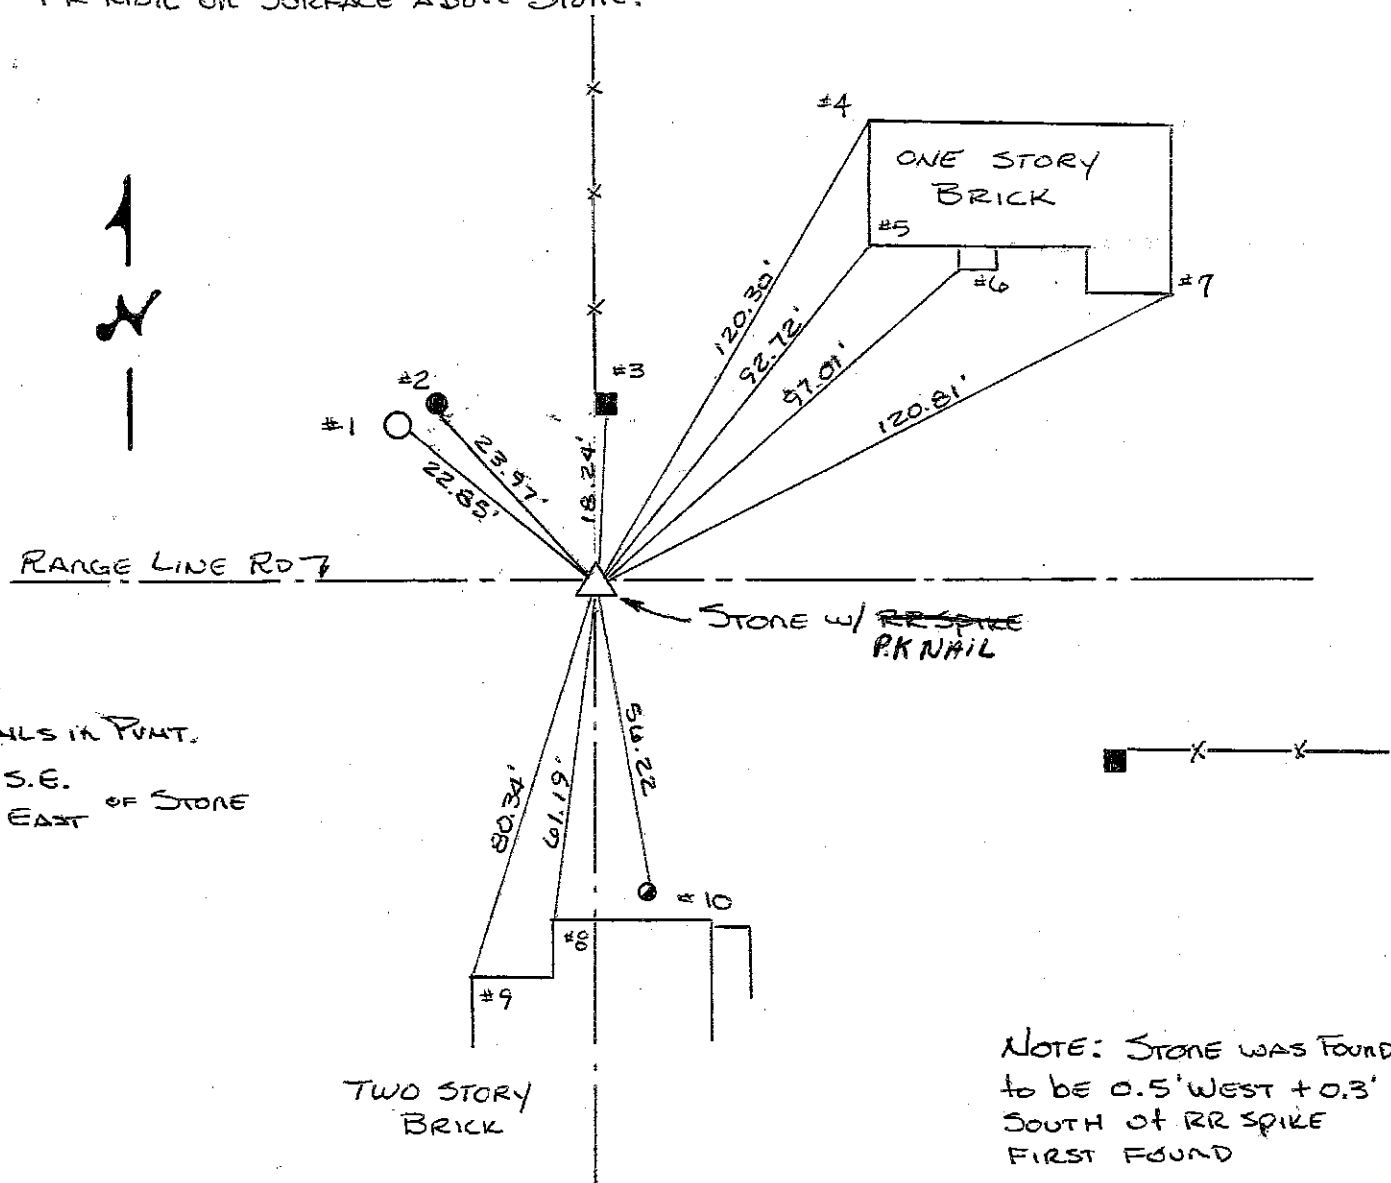 ON SURFACE ABOVE STONE.
#4
ONE STORY
BRICK
#5
#6
#7
120.30'
92.72'
97.01'
120.81'
N
#2
#3
#1
23.97'
22.85'
18.24'
RANGE LINE RD
STONE W/ RR SPIKE
P.K NAIL
IN PVMT.
S.E.
EAST OF STONE
80.34'
61.19'
56.22
#10
#8
#9
TWO STORY
BRICK
NOTE: STONE WAS FOUND
to be 0.5' WEST + 0.3'
SOUTH of RR SPIKE
FIRST FOUND